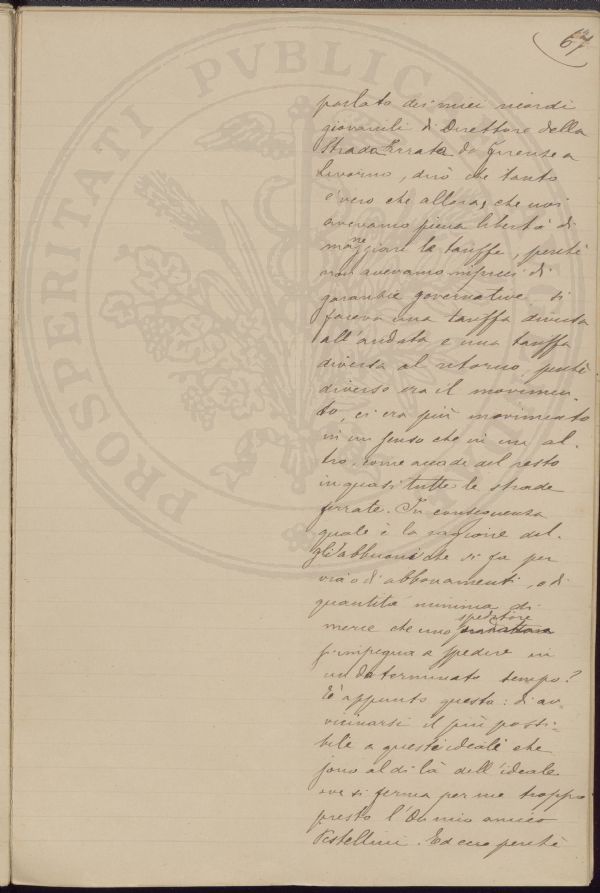 67
parlato dei miei ricordi
giovanili di Direttore della
Strada Ferrata da Firenze a
Livorno, dirò che tanto
è vero che allora, che noi
avevamo piena libertà di
maneggiare le tariffe, perchè
non avevamo di
garanzie governative si
faceva una tariffa diversa
all'andata e una tariffa
diversa al ritorno, perchè
diverso era il movimen-
to, ci era più movimento
in un senso che in un al-
tro, come accade del resto
in quasi tutte le strade
ferrate. In conseguenza
quale è la ragione del-
gli abbuoni che si fa per
via di abbonamenti, o di
quantità minima di
merce che uno speditore
s'impegna a spedire in
un determinato tempo?
È appunto questa: di av-
vicinarsi il più possi-
bile a questi ideali che
sono al di là dell'ideale
ove si ferma per me troppo
presto l'On. mio amico
Pestellini. Ed ecco perchè
PROSPERITATI PVBLICAE